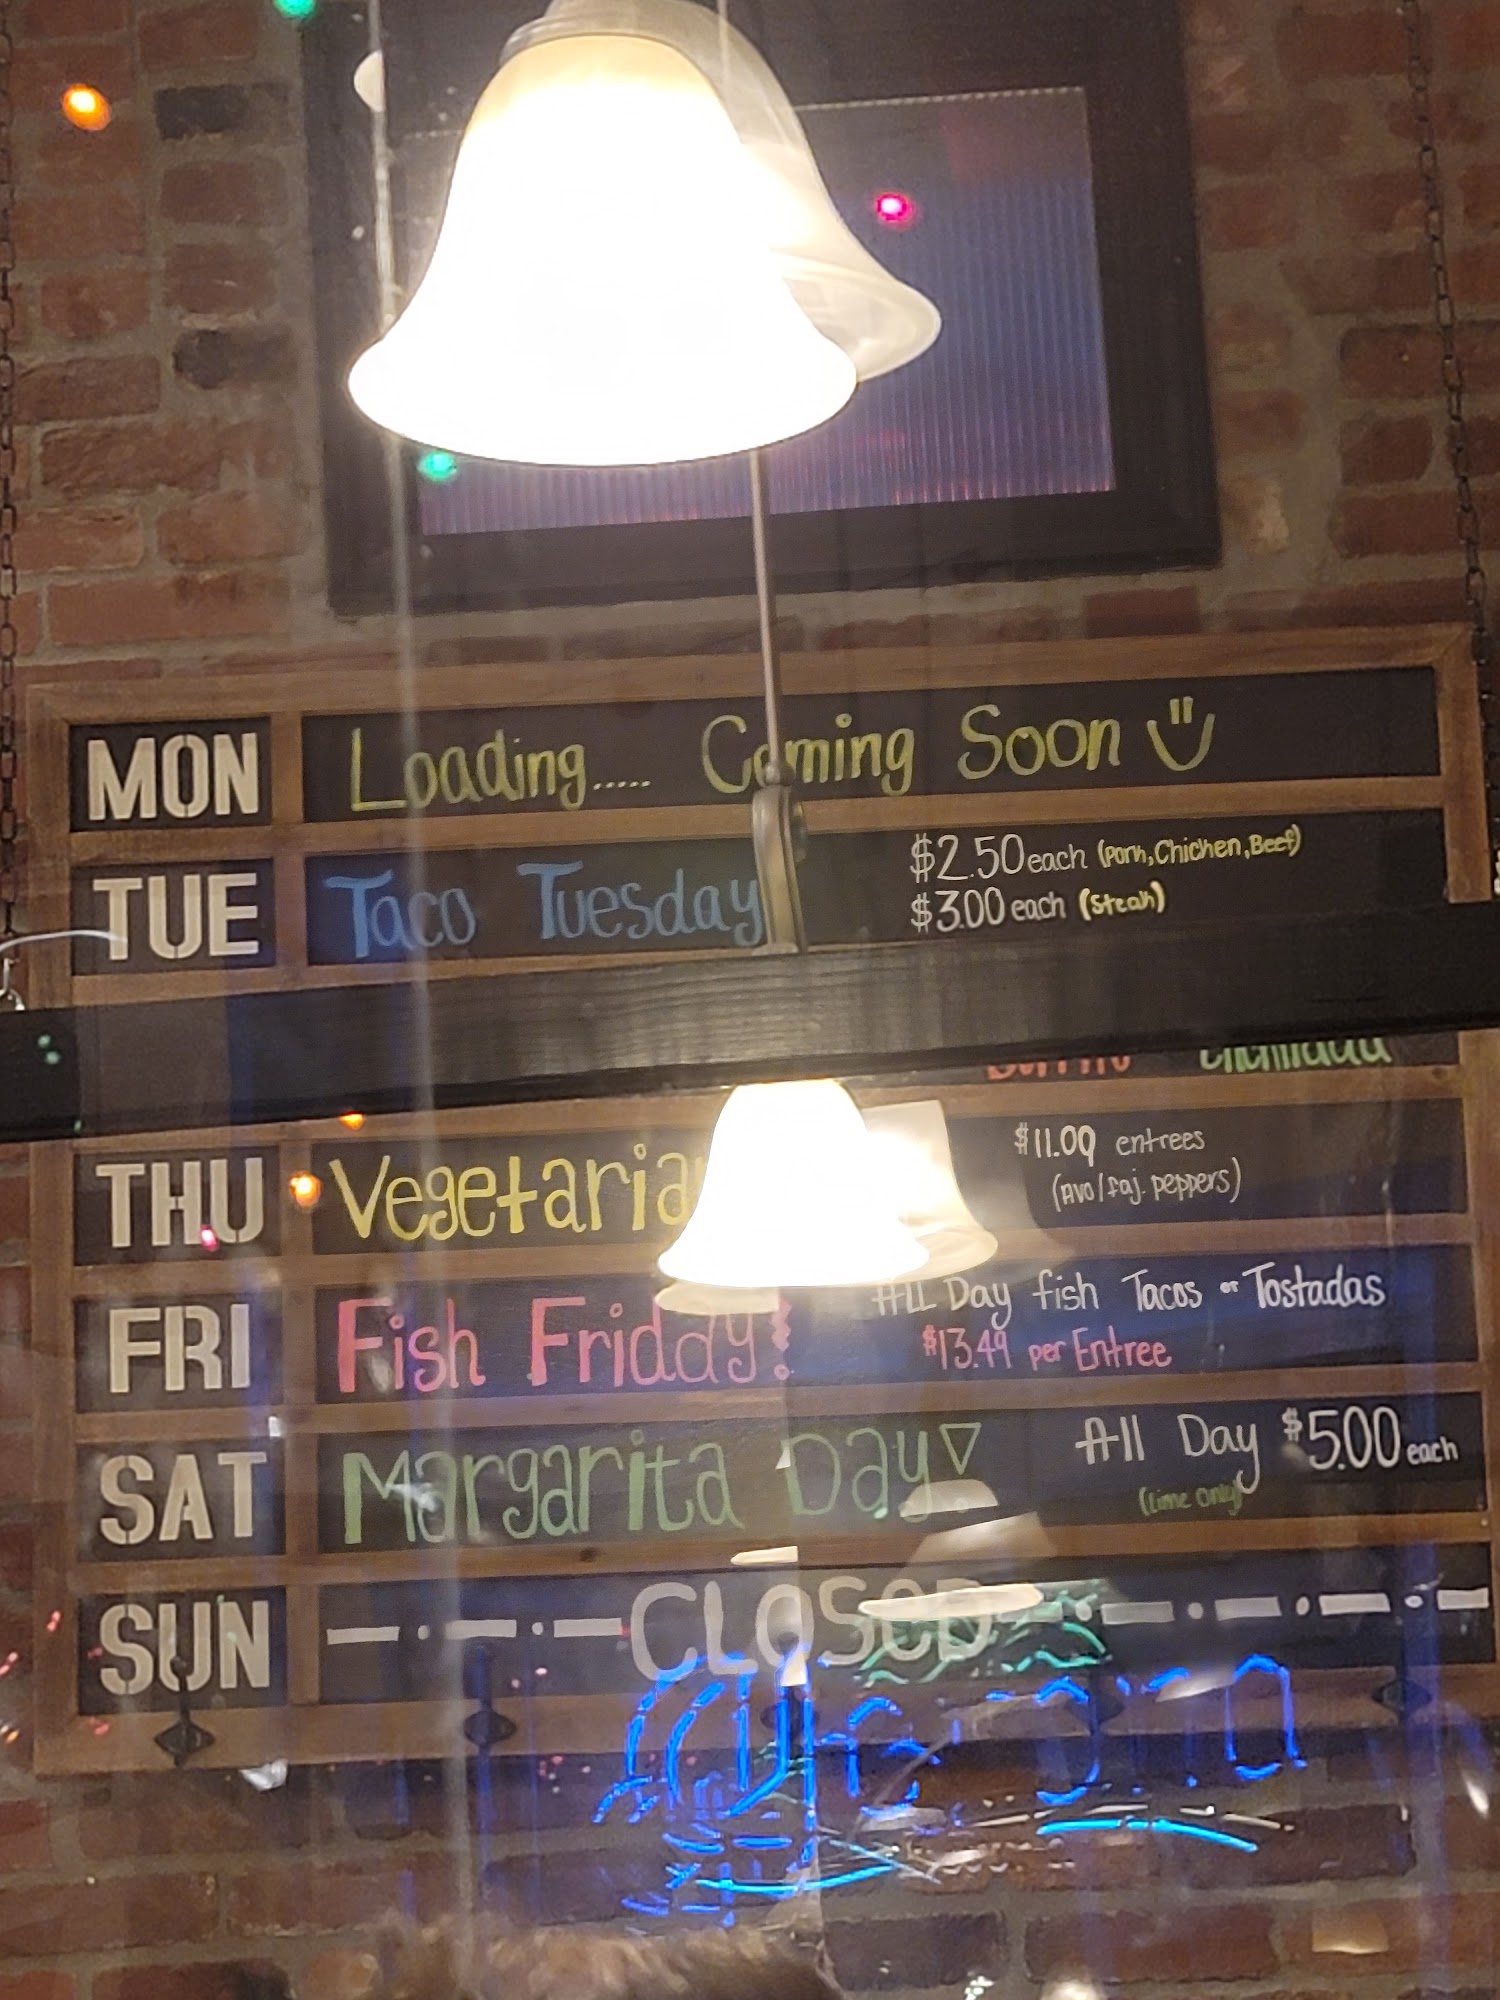 MON Loading..... Coming Soon
TUE Taco Tuesday
$2.50 each (Pork, Chicken, Beef)
$3.00 each (Steak)
Burrito Enchilada
THU Vegetarian
$11.09 entrees
(Avo/faj. peppers)
FRI Fish Friday!
All Day fish Tacos or Tostadas
$13.49 per Entree
SAT Margarita Day! All Day $5.00 each
(Lime only)
SUN CLOSED